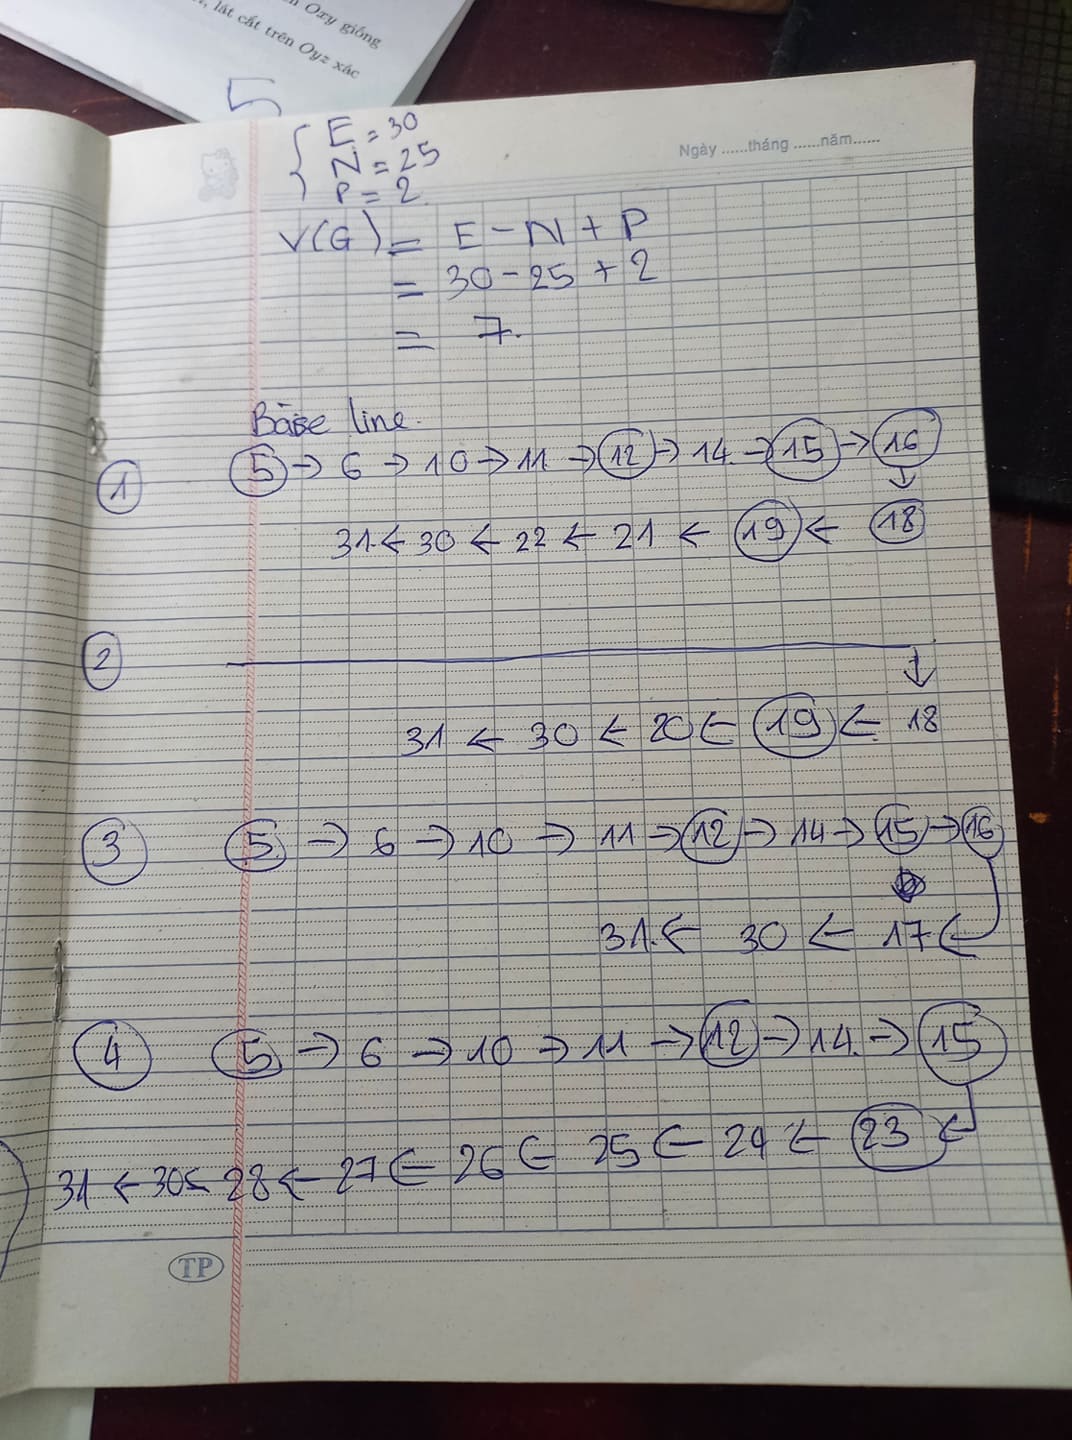 Oxy giống
lát cắt trên Oyz xác
5
E = 30
N = 25
P = 2
Ngày ......tháng ......năm......
V(G) = E - N + P
= 30 - 25 + 2
= 7.
Base line.
1 5 → 6 → 10 → 11 → 12 → 14 → 15 → 16
↓
31 ← 30 ← 22 ← 21 ← 19 ← 18
2
↓
31 ← 30 ← 20 ← 19 ← 18
3 5 → 6 → 10 → 11 → 12 → 14 → 15 → 16
31 ← 30 ← 17 ←
4 5 → 6 → 10 → 11 → 12 → 14 → 15
31 ← 30 ← 28 ← 27 ← 26 ← 25 ← 24 ← 23 ←
TP